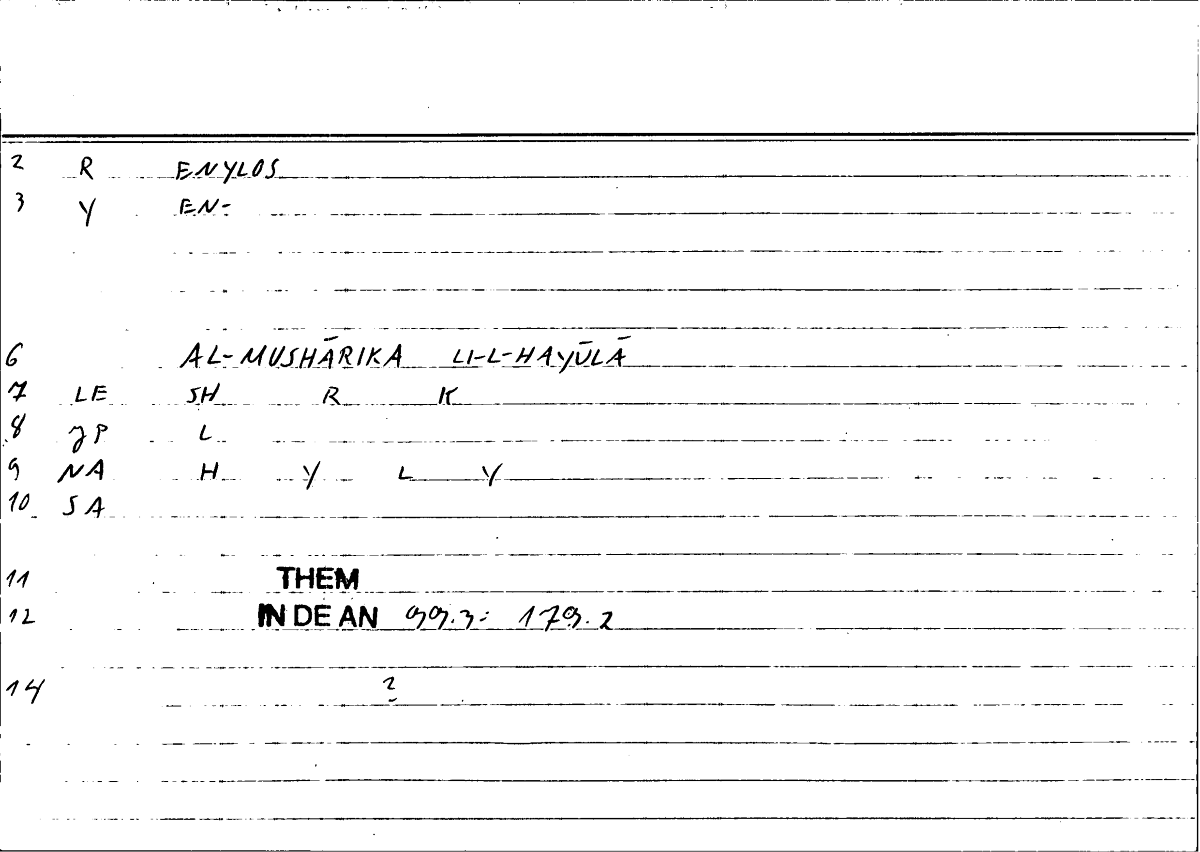 2 R ENYLOS
3 Y EN-
6 AL-MUSHĀRIKA LI-L-HAYŪLĀ
7 LE SH R K
8 JP L
9 NA H Y L Y
10 SA
11 THEM
12 IN DE AN 99.3: 179.2
14 2